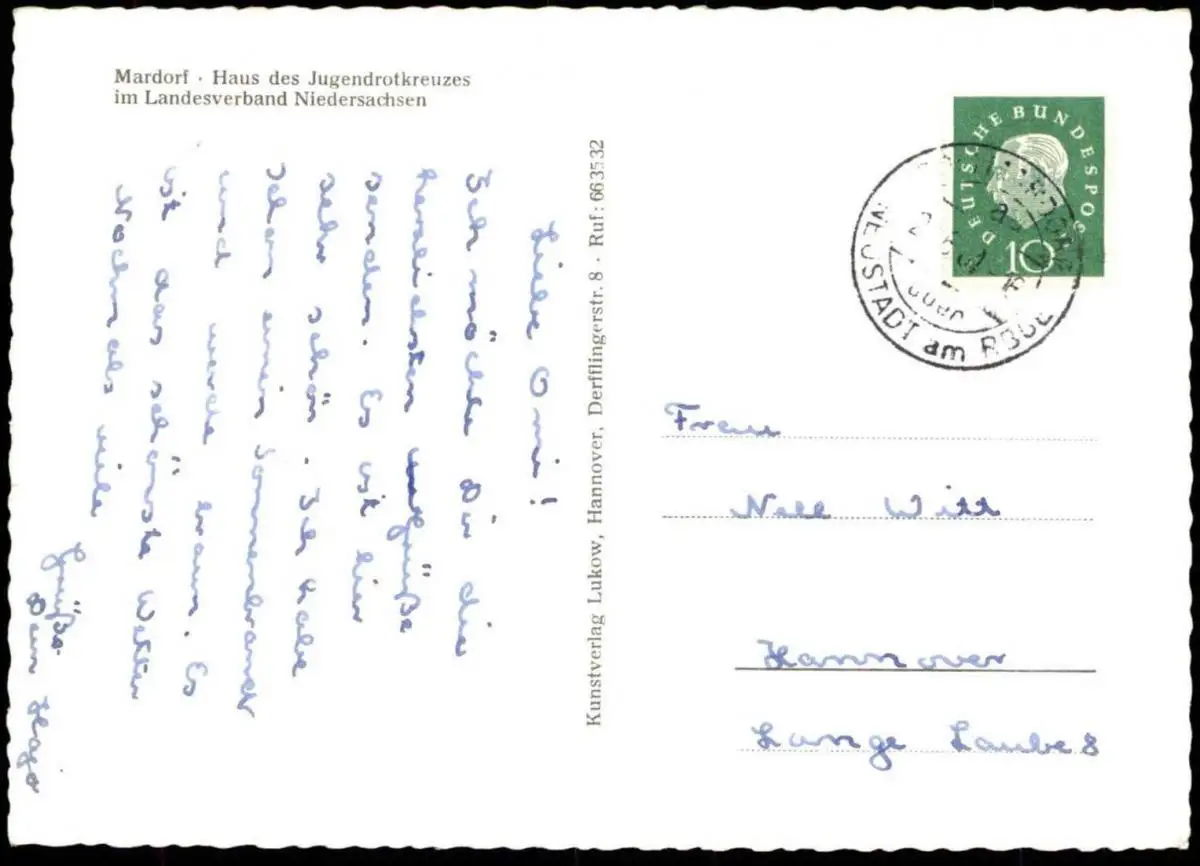 Mardorf · Haus des Jugendrotkreuzes
im Landesverband Niedersachsen
Liebe Omi!
Ich möchte Dir die
herzlichsten Grüße
senden. Es ist hier
sehr schön. Ich habe
schon einen Sonnenbrand
und werde braun. Es
ist das schönste Wetter
Nochmals viele
Grüße
Dein
Kunstverlag Lukow, Hannover, Derfflingerstr. 8 · Ruf: 663532
DEUTSCHE BUNDESPOST
10
NEUSTADT am RBGE
Frau
Nell Witt
Hannover
Lange Laube 8